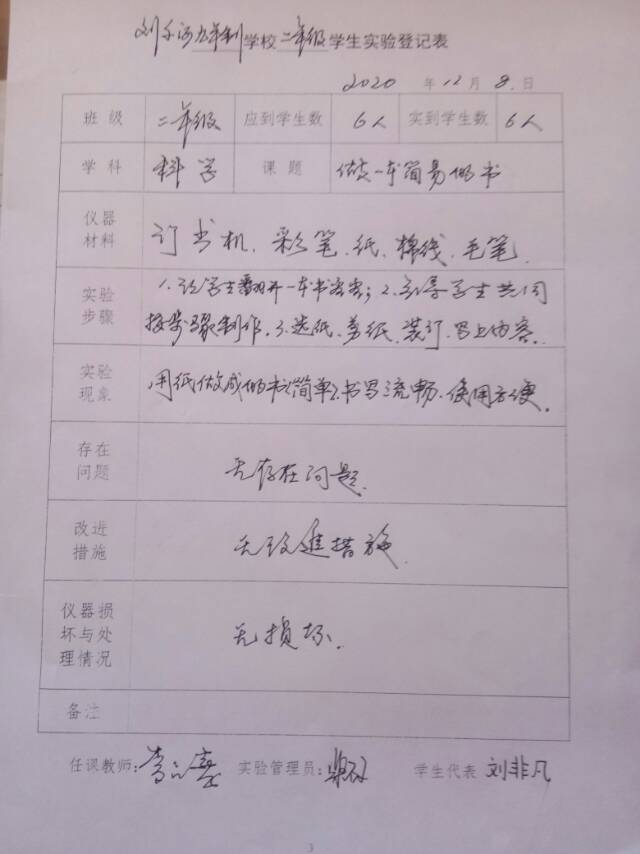 刘千河九年制学校二年级学生实验登记表
2020 年 12 月 8 日
班 级 二年级 应到学生数 6人 实到学生数 6人
学 科 科学 课 题 做一本简易的书
仪器
材料
订书机、彩笔、纸、棉线、毛笔.
实验
步骤
1. 让学生翻开一本书看看; 2. 引导学生共同
按步骤制作. 3. 选纸、剪纸、装订、写上内容.
实验
现象
用纸做成的书(简单),书写流畅、使用方便.
存在
问题
无存在问题.
改进
措施
无改進措施.
仪器损
坏与处
理情况
无损坏.
备注
任课教师: 实验管理员: 学生代表 刘非凡
3